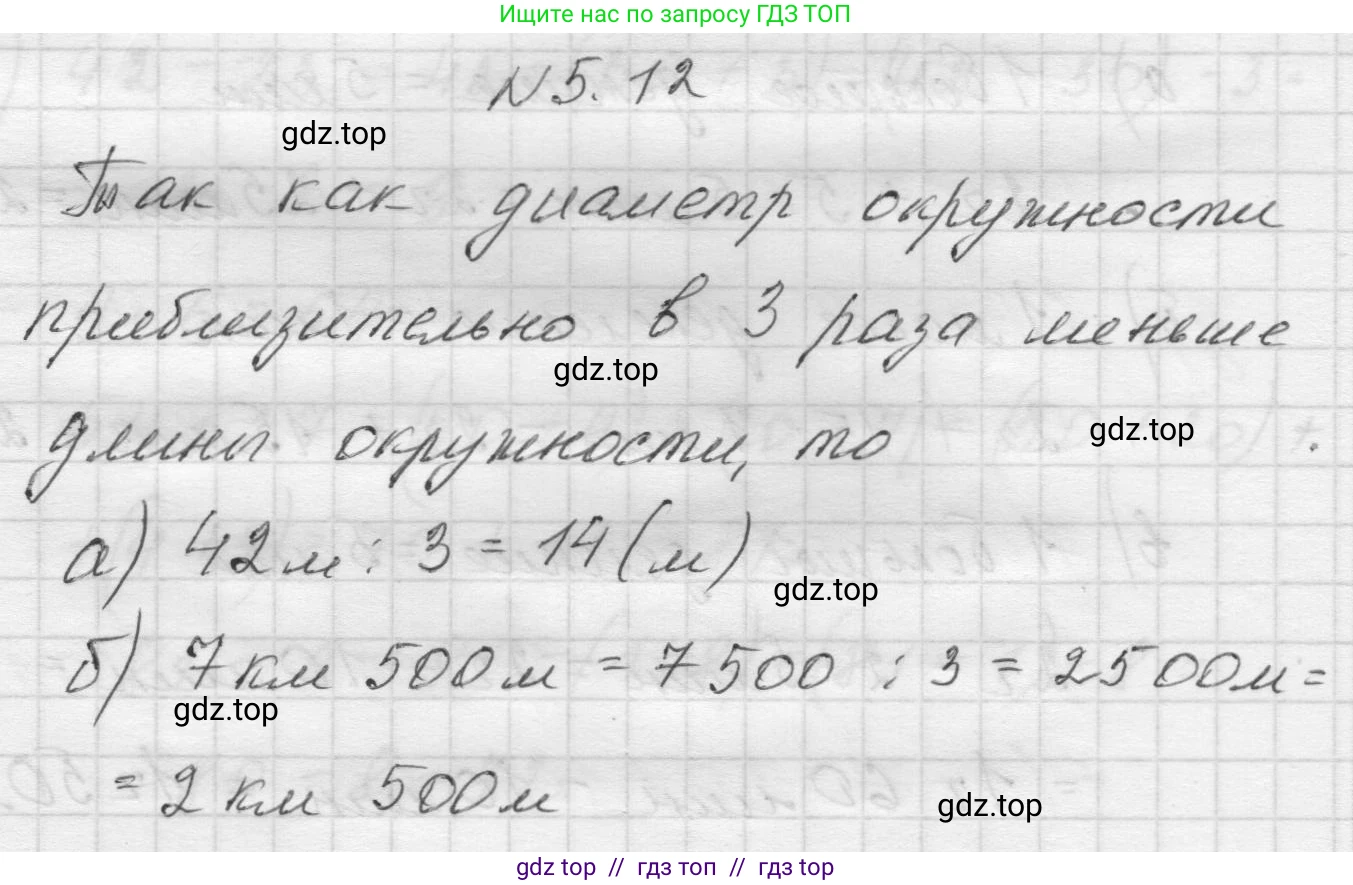 Ищите нас по запросу ГДЗ ТОП
N 5.12
gdz.top
Так как диаметр окружности
приблизительно в 3 раза меньше
gdz.top
длины окружности, то
gdz.top
а) 42 м : 3 = 14 (м)
gdz.top
б) 7 км 500 м = 7 500 : 3 = 2500 м =
gdz.top
= 2 км 500 м
gdz.top
gdz top // гдз топ // гдз top